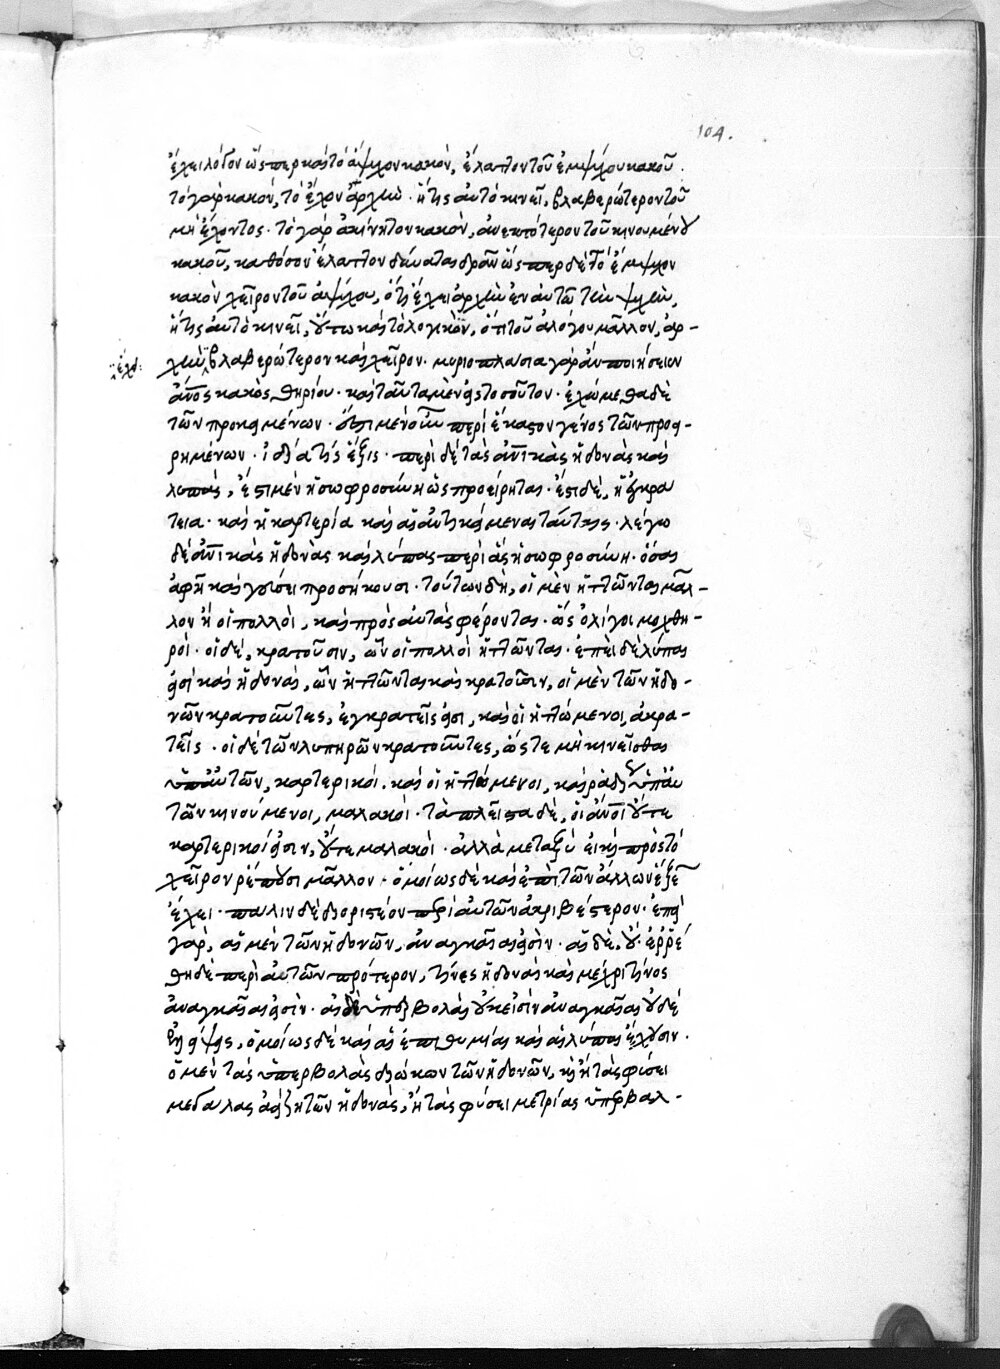 104.
ἔχει λόγον ὥσπερ καὶ τὸ ἄψυχον κακὸν, ἔλαττον τοῦ ἐμψύχου κακοῦ.
τὸ γὰρ κακὸν, τὸ ἔχον ἀρχὴν ἥτις αὐτὸ κινεῖ, βλαβερώτερον τοῦ
μὴ ἔχοντος· τὸ γὰρ ἀκίνητον κακὸν, ἀνεκτότερον τοῦ κινουμένου
κακοῦ, καθόσον ἔλαττον δύναται δρᾶν ὥσπερ δὲ τὸ ἔμψυχον
κακὸν χεῖρον τοῦ ἀψύχου, ὅτι ἔχει ἀρχὴν ἐν αὑτῷ τὴν ψυχὴν,
ἥτις αὐτὸ κινεῖ, οὕτω καὶ τὸ λογικὸν, ὅτι τοῦ ἀλόγου μᾶλλον, ἀρ-
ἔχει χὴν βλαβερώτερον καὶ χεῖρον· μυριοπλάσια γὰρ ἂν ποιήσειεν
ἄνος κακὸς θηρίου· καὶ ταῦτα μὲν εἰς τοσοῦτον· ἐχώμεθα δὲ
τῶν προκειμένων· ὅτι μὲν οὖν περὶ ἕκαστον γένος τῶν προει-
ρημένων· ἰδία τίς ἕξις· περὶ δὲ τὰς ἀνικὰς ἡδονὰς καὶ
λύπας, ἔστι μὲν ἡ σωφροσύνη ὡς προείρηται· ἔστι δὲ, ἡ ἐγκρά
τεια· καὶ ἡ καρτερία καὶ αἱ ἀντικείμεναι ταύταις· λέγω
δὲ ἀνικὰς ἡδονὰς καὶ λύπας περὶ ἃς ἡ σωφροσύνη· ὅσαι
ἁφῇ καὶ γεύσει προσήκουσι· τούτων δὴ, οἱ μὲν ἡττῶνται μᾶλ-
λον ἢ οἱ πολλοὶ, καὶ πρὸς αὐτὰς φέρονται· ὡς ὀλίγοι μοχθη-
ροί· οἱ δὲ, κρατοῦσιν, ὧν οἱ πολλοὶ ἡττῶνται· ἐπεὶ δὲ λύπαι
εἰσὶ καὶ ἡδοναὶ, ὧν ἡττῶνται καὶ κρατοῦσιν, οἱ μὲν τῶν ἡδο-
νῶν κρατοῦντες, ἐγκρατεῖς εἰσι, καὶ οἱ ἡττώμενοι, ἀκρα-
τεῖς· οἱ δὲ τῶν λυπηρῶν κρατοῦντες, ὥστε μὴ κινεῖσθαι
ὑπ' αὐτῶν, καρτερικοί· καὶ οἱ ἡττώμενοι, καὶ ῥᾳδίως ὑπ' αὐ
τῶν κινούμενοι, μαλακοί· τὰ πλεῖστα δὲ, οἱ ἄνοι οὔτε
καρτερικοί εἰσιν, οὔτε μαλακοί· ἀλλὰ μεταξὺ εἰ καὶ πρὸς τὸ
χεῖρον ῥέπουσι μᾶλλον· ὁμοίως δὲ καὶ ἐπὶ τῶν ἄλλων ἕξεων
ἔχει· πάλιν δὲ διοριστέον περὶ αὐτῶν ἀκριβέστερον· ἐπεὶ
γὰρ, αἱ μὲν τῶν ἡδονῶν, ἀναγκαῖαι εἰσὶν· αἱ δὲ, οὔ· ἐρρέ
θη δὲ περὶ αὐτῶν πρότερον, τίνες ἡδοναὶ καὶ μέχρι τίνος
ἀναγκαῖαι εἰσὶν· αἱ δὲ ὑπερβολαὶ οὐκ εἰσὶν ἀναγκαῖαι οὐδὲ
ἐλλείψεις, ὁμοίως δὲ καὶ αἱ ἐπιθυμίαι καὶ αἱ λύπαι ἔχουσιν·
ὁ μὲν τὰς ὑπερβολὰς διώκων τῶν ἡδονῶν, καὶ ἢ τὰς φύσει
μεγάλας ἀεὶ ζητῶν ἡδονὰς, ἢ τὰς φύσει μετρίας ὑπερβαλ-